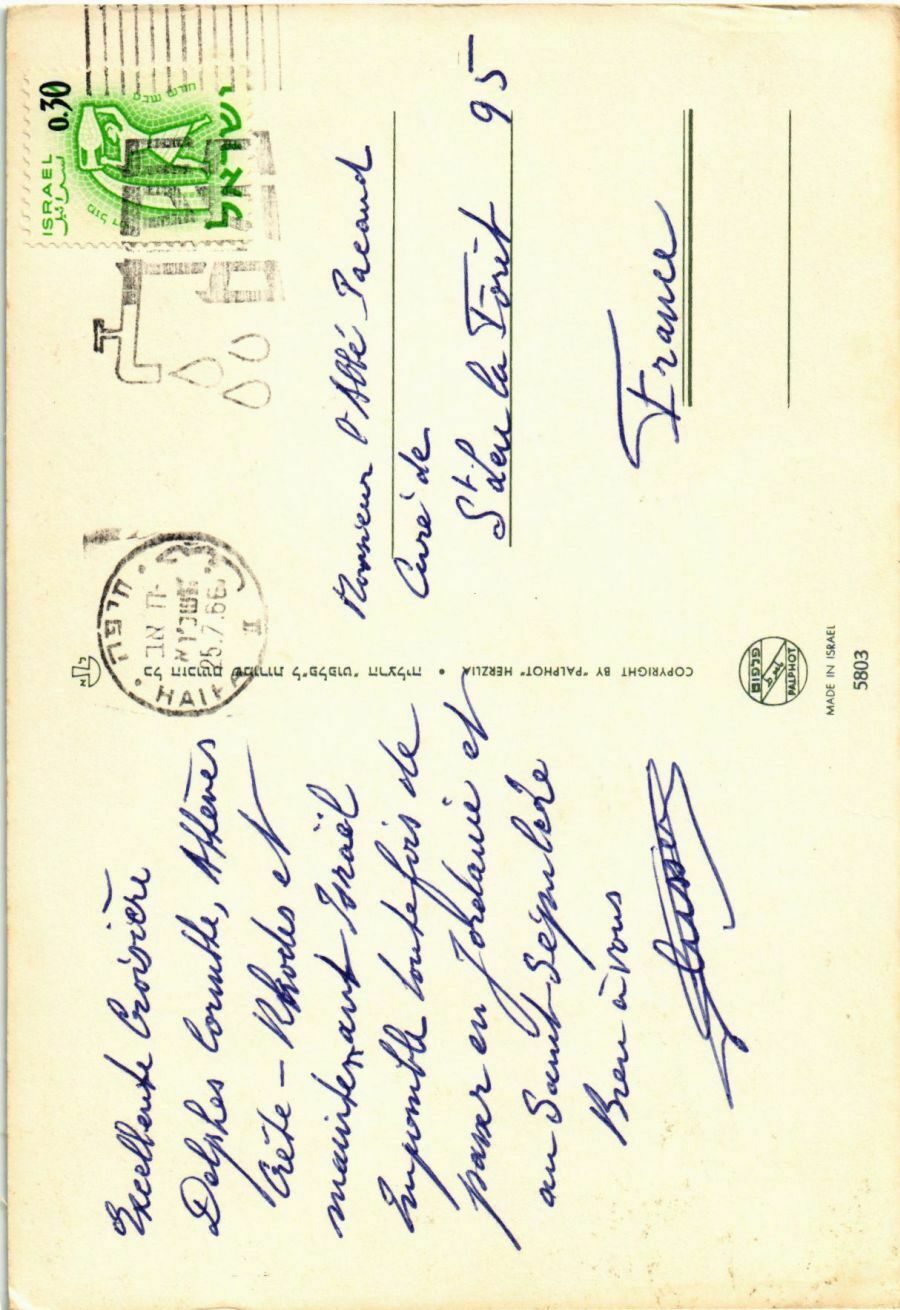 Excellente Croisière
Delphes Corinthe, Athènes
Crète - Rhodes et
maintenant Israël
Impossible toutefois de
passer en Jordanie et
au Saint Sépulcre
Bien à vous
ISRAEL
0.30
ישראל
חיפה
25.7.66
HAIFA
Monsieur l'Abbé Pacaud
Curé de
St Leu la Forêt 95
France
כל הזכויות שמורות ל"פלפוט" הרצליה • COPYRIGHT BY "PALPHOT" HERZLIA
פלפוט
PALPHOT
MADE IN ISRAEL
5803